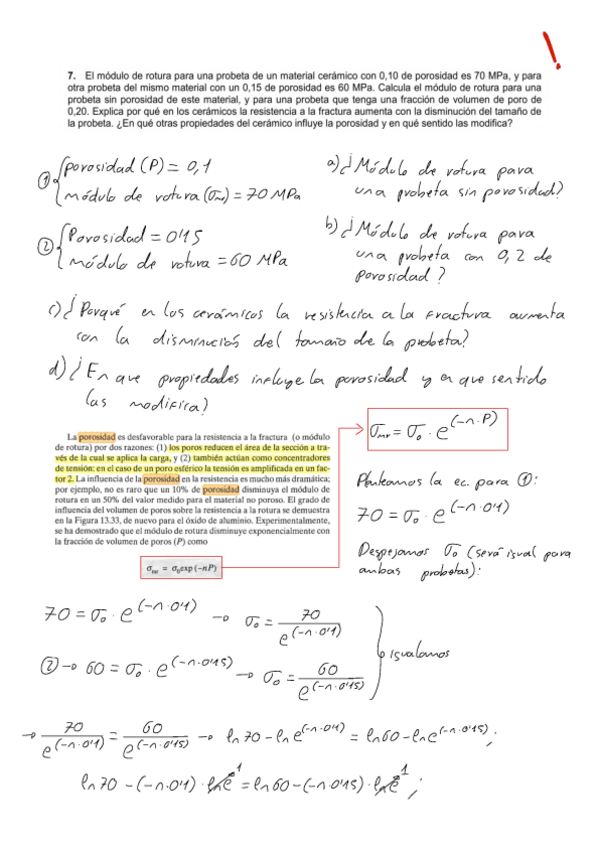 7. El módulo de rotura para una probeta de un material cerámico con 0,10 de porosidad es 70 MPa, y para
otra probeta del mismo material con un 0,15 de porosidad es 60 MPa. Calcula el módulo de rotura para una
probeta sin porosidad de este material, y para una probeta que tenga una fracción de volumen de poro de
0,20. Explica por qué en los cerámicos la resistencia a la fractura aumenta con la disminución del tamaño de
la probeta. ¿En qué otras propiedades del cerámico influye la porosidad y en qué sentido las modifica?
① porosidad (P) = 0,1
módulo de rotura (σmr) = 70 MPa
② Porosidad = 0'15
módulo de rotura = 60 MPa
a) ¿Módulo de rotura para
una probeta sin porosidad?
b) ¿Módulo de rotura para
una probeta con 0,2 de
porosidad?
c) ¿Porqué en los cerámicos la resistencia a la fractura aumenta
con la disminución del tamaño de la probeta?
d) ¿En que propiedades influye la porosidad y en que sentido
las modifica?
La porosidad es desfavorable para la resistencia a la fractura (o módulo
de rotura) por dos razones: (1) los poros reducen el área de la sección a tra-
vés de la cual se aplica la carga, y (2) también actúan como concentradores
de tensión: en el caso de un poro esférico la tensión es amplificada en un fac-
tor 2. La influencia de la porosidad en la resistencia es mucho más dramática;
por ejemplo, no es raro que un 10% de porosidad disminuya el módulo de
rotura en un 50% del valor medido para el material no poroso. El grado de
influencia del volumen de poros sobre la resistencia a la rotura se demuestra
en la Figura 13.33, de nuevo para el óxido de aluminio. Experimentalmente,
se ha demostrado que el módulo de rotura disminuye exponencialmente con
la fracción de volumen de poros (P) como
σmr = σ0exp (−nP)
σmr = σ0 · e^(-n·P)
Planteamos la ec. para ①:
70 = σ0 · e^(-n·0'1)
Despejamos σ0 (será igual para
ambas probetas):
70 = σ0 · e^(-n·0'1) → σ0 = 70 / e^(-n·0'1)
② → 60 = σ0 · e^(-n·0'15) → σ0 = 60 / e^(-n·0'15)
igualamos
→ 70 / e^(-n·0'1) = 60 / e^(-n·0'15) → ln70 - ln e^(-n·0'1) = ln60 - ln e^(-n·0'15);
ln70 - (-n·0'1) · ln e^1 = ln60 - (-n·0'15) · ln e^1;